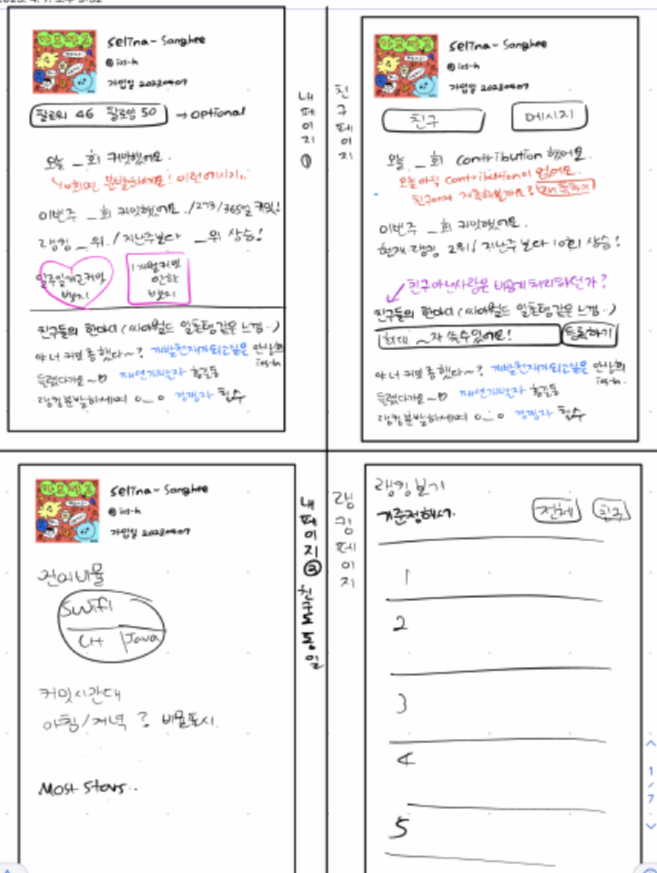 Selina - Sanghee
@ios-h
가입일 20230407
팔로워 46 팔로잉 50 → optional
오늘 _회 커밋했어요.
↳ 0회면 분발하세요! 이런메시지..
이번주 _회 커밋했어요. / 273/365일 커밋!
랭킹 _위. / 지난주보다 _위 상승!
일주일개근커밋
뱃지
1개월커밋
안하
뱃지
친구들의 한마디 (싸이월드 일촌평같은 느낌..)
야 너 커밋 좀 했다~? 개발천재가되고싶은 안상희
ios-h
들렸다가요~ 패션개발자 홍길동
랭킹분발하세여 0_0 경쟁자 철수
내페이지 ①
친구페이지
Selina - Sanghee
@ios-h
가입일 20230407
친구
메시지
오늘 _회 contribution 했어요.
오늘 아직 contribution이 없어요.
친구에게 재촉해볼까요? 재촉하기
이번주 _회 커밋했어요.
현재 랭킹 2위 / 지난주보다 10위 상승!
친구아닌사람은 비공개처리하던가?
친구들의 한마디 (싸이월드 일촌평같은 느낌..)
최대 _자 쓸수있어요!
등록하기
야 너 커밋 좀 했다~? 개발천재가되고싶은 안상희
ios-h.
들렸다가요~ 패션개발자 홍길동
랭킹분발하세여 0_0 경쟁자 철수
Selina - Sanghee
@ios-h
가입일 20230407
언어비율
Swift
C++
Java
커밋시간대
아침/저녁 ? 비율표시.
Most Stars..
내페이지 ② 친구도 동일
랭킹페이지
랭킹보기
기준정해서.
전체
친구
1
2
3
4
5
1
7